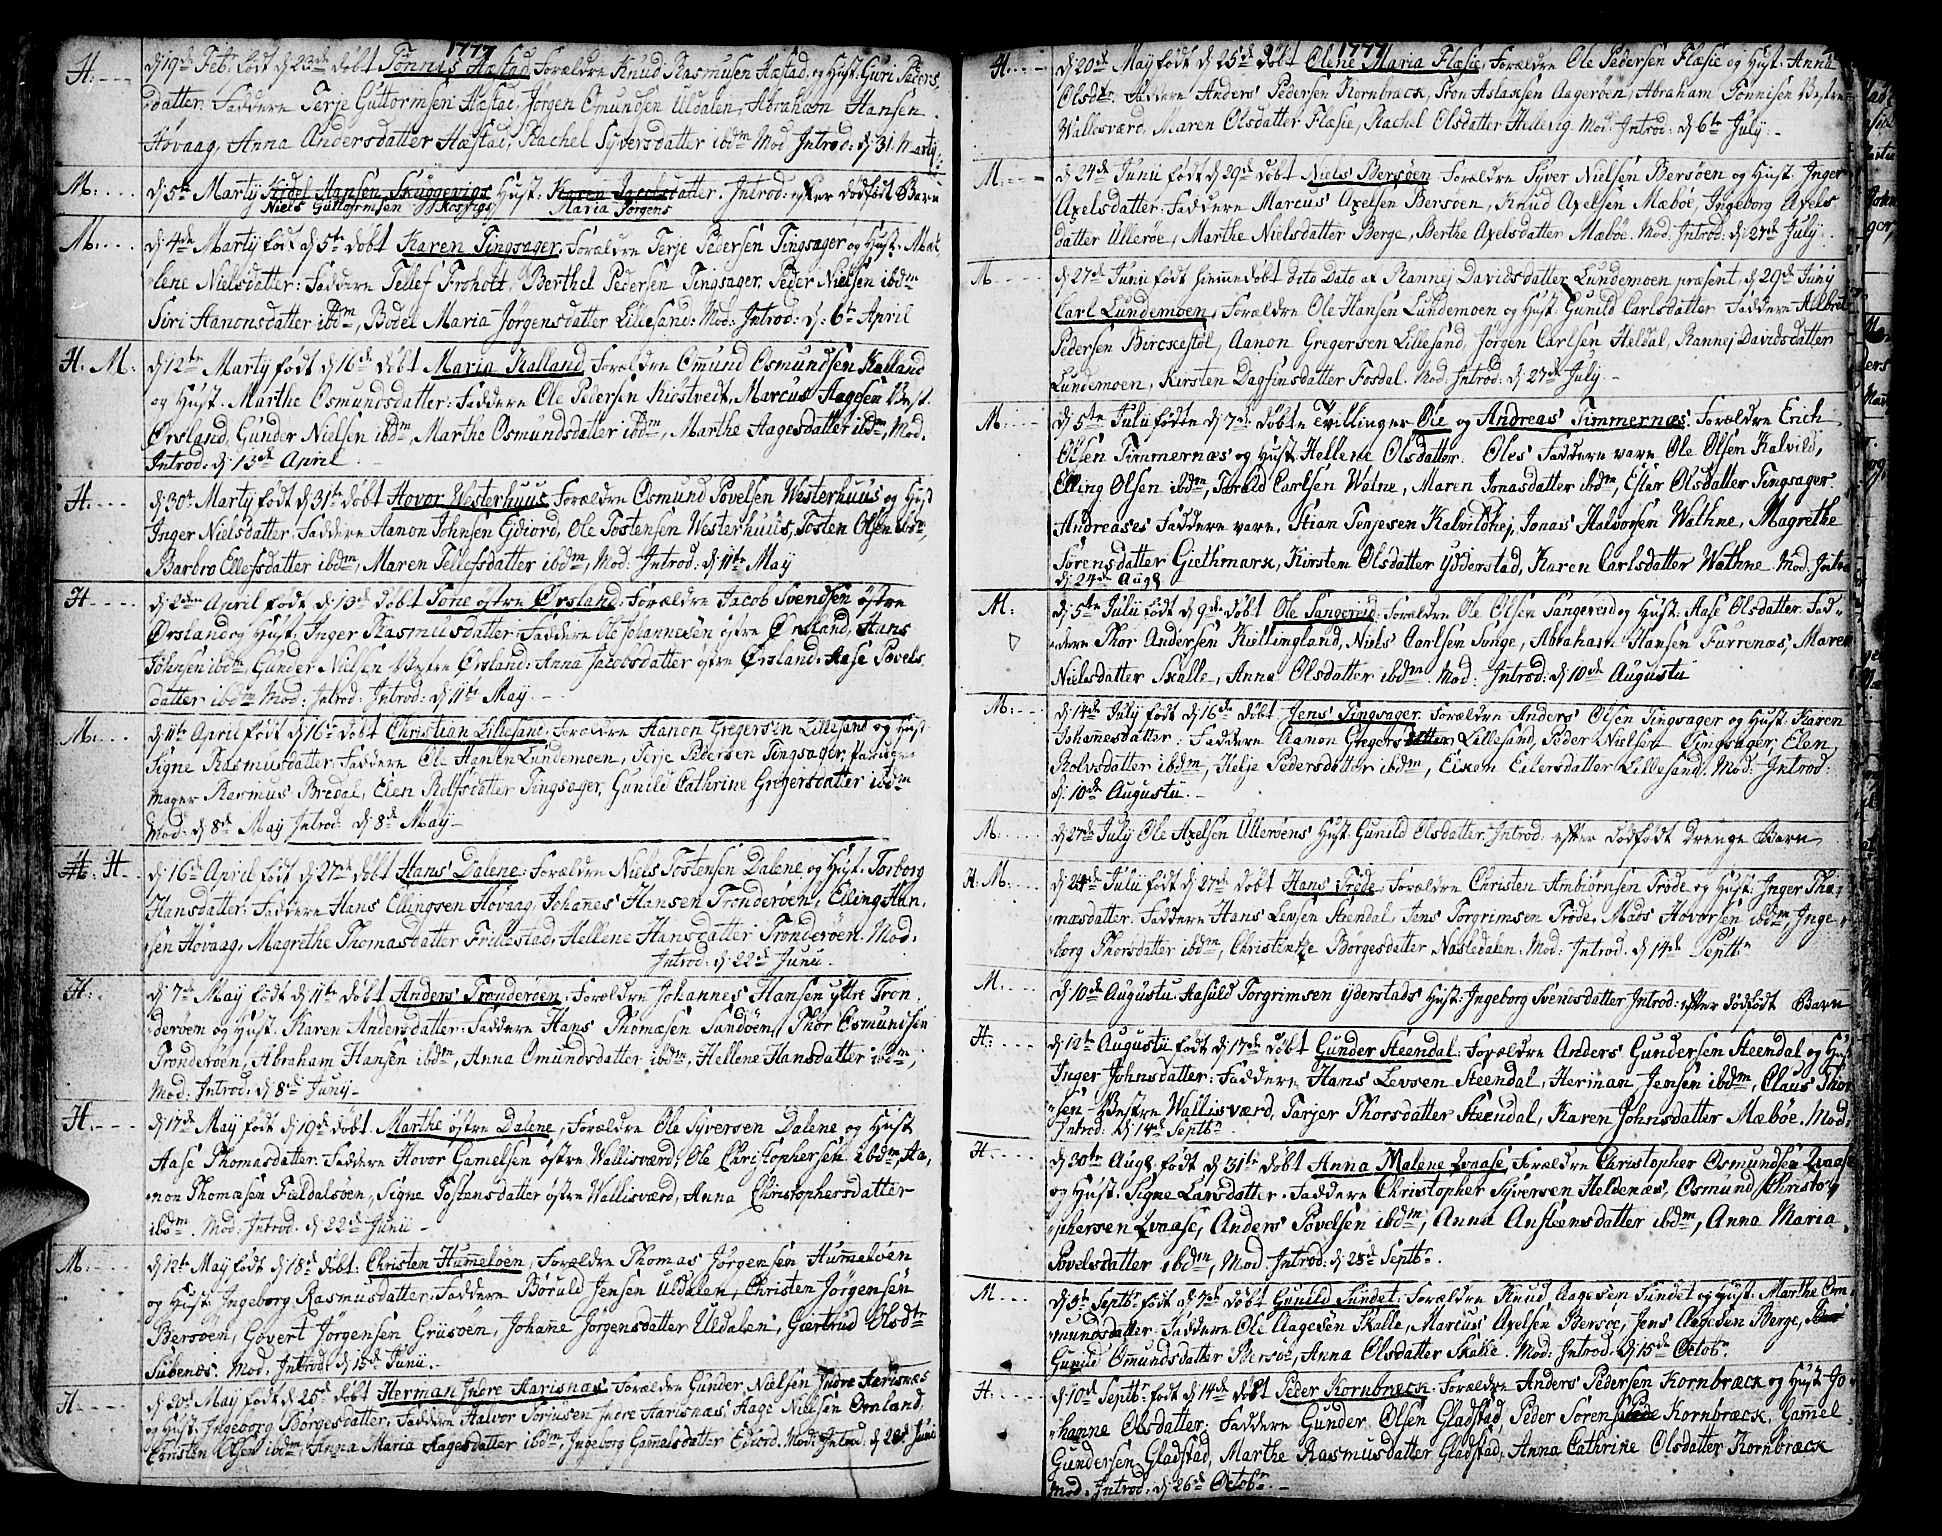 1777
H: d 19de Feb: født d 23de døbt Tønnis Hæstad, Forældre Knud Rasmusen Hæstad, og Hust: Guri Peders
datter. Faddere Terje Guttormsen Hæstad, Jørgen Omundsen Uldalen, Abraham Hansen
Høvaag, Anna Andersdatter Hæstad, Rachel Syversdatter ibdm Mod: Introd: d 31 Marty
M: d 5te Marty Kidel Hansen Skuggevigs Hust: Karen Jacobsdatter. Introd: efter dødfødt Barn
Niels Guttormsen Maria Jørgens
M: d 4de Marty født d 5te døbt Karen Tingsager. Forældre Terje Pedersen Tingsager og Hust: Mal
lene Nielsdatter: Faddere Tellef Froholt, Berthel Pedersen Tingsager, Peder Nielsen ibdm
Siri Hanonsdatter ibdm, Bodel Maria Jørgensdatter Lillesand: Mod: Introd: d: 6te April
H. M: d 12te Marty født d 16de døbt Maria Kalland Forældre Omund Osmundsen Kalland
og Hust. Marthe Osmundsdatter: Faddere Ole Pedersen Kiøstvedt, Marcus Aagesen Vest.
Ørsland, Gunder Nielsen ibdm, Marthe Osmundsdatter ibdm, Marthe Aagesdatter ibdm, Mod.
Introd: d 13de April
H: d 30te Marty født d 31te døbt Hovor Westerhuus Forældre Osmund Povelsen Westerhuus og Hust
Inger Nielsdatter: Faddere Aanon Johnsen Eidiord, Ole Tostensen Westerhuus, Tosten Olsen ibdm,
Barbro Ellefsdatter ibdm, Maren Tellefsdatter ibdm, Mod: Introd: d 11te May
H d 2den April født d 13de døbt Tone østre Ørsland: Forældre Jacob Svendsen østre
Ørsland og Hust: Inger Rasmusdatter: Faddere Ole Johannesen østre Ørsland, Hans
Johnsen ibdm, Gunder Nielsen Westre Ørsland: Anna Jacobsdatter østre Ørsland: Aase Povels
datter ibdm Mod: Introd: Introd: d 11te May.
M: d 11te April født d 16de døbt Christian Lillesand: Forældre Aanon Gregersen Lillesand og Hust
Signe Rasmusdatter: Faddere Ole Hansen Lundemoen, Terje Pedersen Tingsager, Paruque
mager Rasmus Bredal, Elen Rolfsdatter Tingsager, Gunild Cathrine Gregersdatter ibdm
Mod: d 8de May Introd: d 8de May
H: H d 16de April født d 27de døbt Hans Dalene: Forældre Niels Tostensen Dalene og Hust. Torborg
Hansdatter: Faddere Hans Ellingsen Hovaag, Johannes Hansen Trønderøen, Elling Han,
sen Hovaag, Magrethe Thomasdatter Frillestad, Hellene Hansdatter Trønderøen. Mod:
Introd: d 22de Junii
H: d 7de May født d 11te døbt Anders Trønderøen: Forældre Johannes Hansen yttre Tron,
derøen og Hust: Karen Andersdatter: Faddere Hans Thomasen Sandøen, Thor Osmundsen
Trønderøen, Abraham Hansen ibdm, Anna Omundsdatter ibdm, Hellene Hansdatter ibdm,
Mod: Introd: d 8de Juny
H: d 17de May født d 19de døbt Marthe østre Dalene, Forældre Ole Syversen Dalene og Hust
Aase Thomasdatter: Faddere Hovor Gamelsen østre Wallisværd, Ole Christophersen ibdm, Aa,
non Thomasen Fieldalsøen, Signe Tostensdatter østre Wallisværd, Anna Christophersdatter
ibdm. Mod: Introd: d 22de Junii
M: d 12te May født d 18de døbt: Christen Hummeløen, Forældre Thomas Jørgensen Hummeløen
og Hust: Ingeborg Rasmusdatter: Faddere Børuld Jensen Uldalen, Christen Jørgensen
Bersøen, Govert Jørgensen Grusøen, Johanne Jørgensdatter Uldalen, Giertrud Olsdtr
Subenes. Mod: Introd: d 15de Junii.
H d 20de May født d 25de døbt Herman Indre Aarisnæs Forældre Gunder Nielsen Indre Aarisnæs
og Hust: Ingeborg Børgesdatter: Faddere Halvor Torjusen Indre Aarisnæs, Aage Nielsen Omland,
Torsten Olsen ibdm, Anna Maria Aagesdatter ibdm, Ingeborg Gamelsdatter Ediord. Mod: Introd: d 28de Junii
1777
H: d 20de May født d 25de døbt Olene Maria Flæsie, Forældre Ole Pedersen Flæsie og Hust: Anna
Olsdtr. Faddere Anders Pedersen Kornbræck, Tron Aslaksen Aagerøen, Abraham Tønnisen Westre
Wallesværd, Maren Olsdatter Flæsie, Rachel Olsdatter Hellevig. Mod: Introd: d 6te July.
M: d 24de Junii født d 29de døbt Niels Bersøen Forældre Syver Nielsen Bersøen og Hust: Inger
Axelsdatter: Faddere Marcus Axelsen Bersøen, Knud Axelsen Mæbøe, Ingeborg Axels
datter Ullerøe, Marthe Nielsdatter Berge, Berthe Axelsdatter Mæbøe. Mod: Introd: d 27de July
M d 27de Junii født hiemmedøbt dito Dato af Rannej Davidsdatter Lundemoen præsent, d 29de Juny
Carl Lundemoen, Forældre Ole Hansen Lundemoen og Hust: Gunild Carlsdatter Faddere Albret
Pedersen Birckestøl, Aanon Gregersen Lillesand, Jørgen Carlsen Heldal, Rannej Davidsdatter
Lundemoen, Kirsten Dagfinsdatter Fosdal. Mod: Introd: d 27de July
M: d 5te July fødte d 7de døbte Tvillinger Ole og Andreas Timmernæs. Forældre Erich
Olsen Timmernæs og Hust Hellene Olsdatter. Oles Faddere vare Ole Olsen Kalvild,
Elling Olsen ibdm, Torald Carlsen Watne, Maren Jonasdatter ibdm, Ester Olsdatter Tingsager
Andreases Faddere vare, Stian Tenjesen Kalvildhej, Jonas Halvorsen Wathne, Magrethe
Sørensdatter Giethmark, Kirsten Olsdatter Ydderstad, Karen Carlsdatter Wathne Mod. Intro
d 24de Aug:
M: d 5te Julii født d 9de døbt Ole Sangereid: Forældre Ole Olsen Sangereid og Hust: Aase Olsdatter. Fad
dere Thor Andersen Køllingland, Niels Carlsen Songe, Abraham Hansen Furrenæs, Maren
Nielsdatter Skalle, Anna Olsdatter ibdm Mod: Introd: d 10de Augustii
M: d 14de July født d 16de døbt Jens Tingsager Forældre Anders Olsen Tingsager og Hust: Karen
Johannesdatter: Faddere Aanon Gregersdatter Lillesand, Peder Nielsen Tingsager, Elen
Rolvsdatter ibdm, Helje Pedersdatter ibdm, Eiken Eilersdatter Lillesand. Mod: Introd:
d: 10de Augustii.
M: d 27de July Ole Axelsen Ullerøens Hust. Gunild Olsdatter. Introd: efter dødfødt Drenge Barn
H. M: d 24de Julii født d 27de døbt Hans Trøde. Forældre Christen Ambiørnsen Trøde og Hust: Inger Tho,
masdatter. Faddere Hans Levsen Steendal, Jens Torgrimsen Trøde, Mads Hovorsen ibdm, Inge
borg Thorsdatter ibdm, Christentze Børgesdatter Næsledalen: Mod: Introd: d 14de Septbr
M. d 10de Augustii Aasuld Torgrimsen Yderstads Hust: Ingeborg Svendsdatter Introd: efter dødfødt Barn
H: d 12te Augustii født d 17de døbt Gunder Steendal: Forældre Anders Gundersen Steendal og Hust
Inger Johnsdatter: Faddere Hans Levsen Steendal, Herman Jensen ibdm, Claus Thor
sen Westre Wallisværd, Tarjer Thorsdatter Steendal, Karen Johnsdatter Mæbøe. Mod:
Introd: d 14de Septbr.
H: d 30te Aug: født d 31te døbt Anna Malene Qvaase, Forældre Christopher Osmundsen Qvaase
og Hust: Signe Larsdatter: Faddere Christopher Syversen Heldenæs, Osmund Christo
phersen Qvaase, Anders Povelsen ibdm, Anna Ansteensdatter ibdm, Anna Maria
Povelsdatter ibdm, Mod Introd: d 28de Septbr.
M d 5te Septbr født d 7de døbt Gunild Sundet: Forældre Knud Aagesen Sundet og Hust: Marthe Om
mundsdatter: Faddere Ole Aagesen Skalle, Marcus Axelsen Bersøe, Jens Aagesen Berge,
Gunild Omundsdatter Bersøe, Anna Olsdatter Skalle. Mod: Introd. d 15de Octobr.
H. d 10de Septbr født d 14de døbt Peder Kornbræck: Forældre Anders Pedersen Kornbræck og Hust: Jo
hanne Olsdatter: Faddere Gunder Olsen Gladstad, Peder Sørensen Kornbræck, Gammel
Gundersen Gladstad, Marthe Rasmusdatter Gladstad, Anna Cathrine Olsdatter Kornbræck
Mod: Introd: d 26de Octobr.